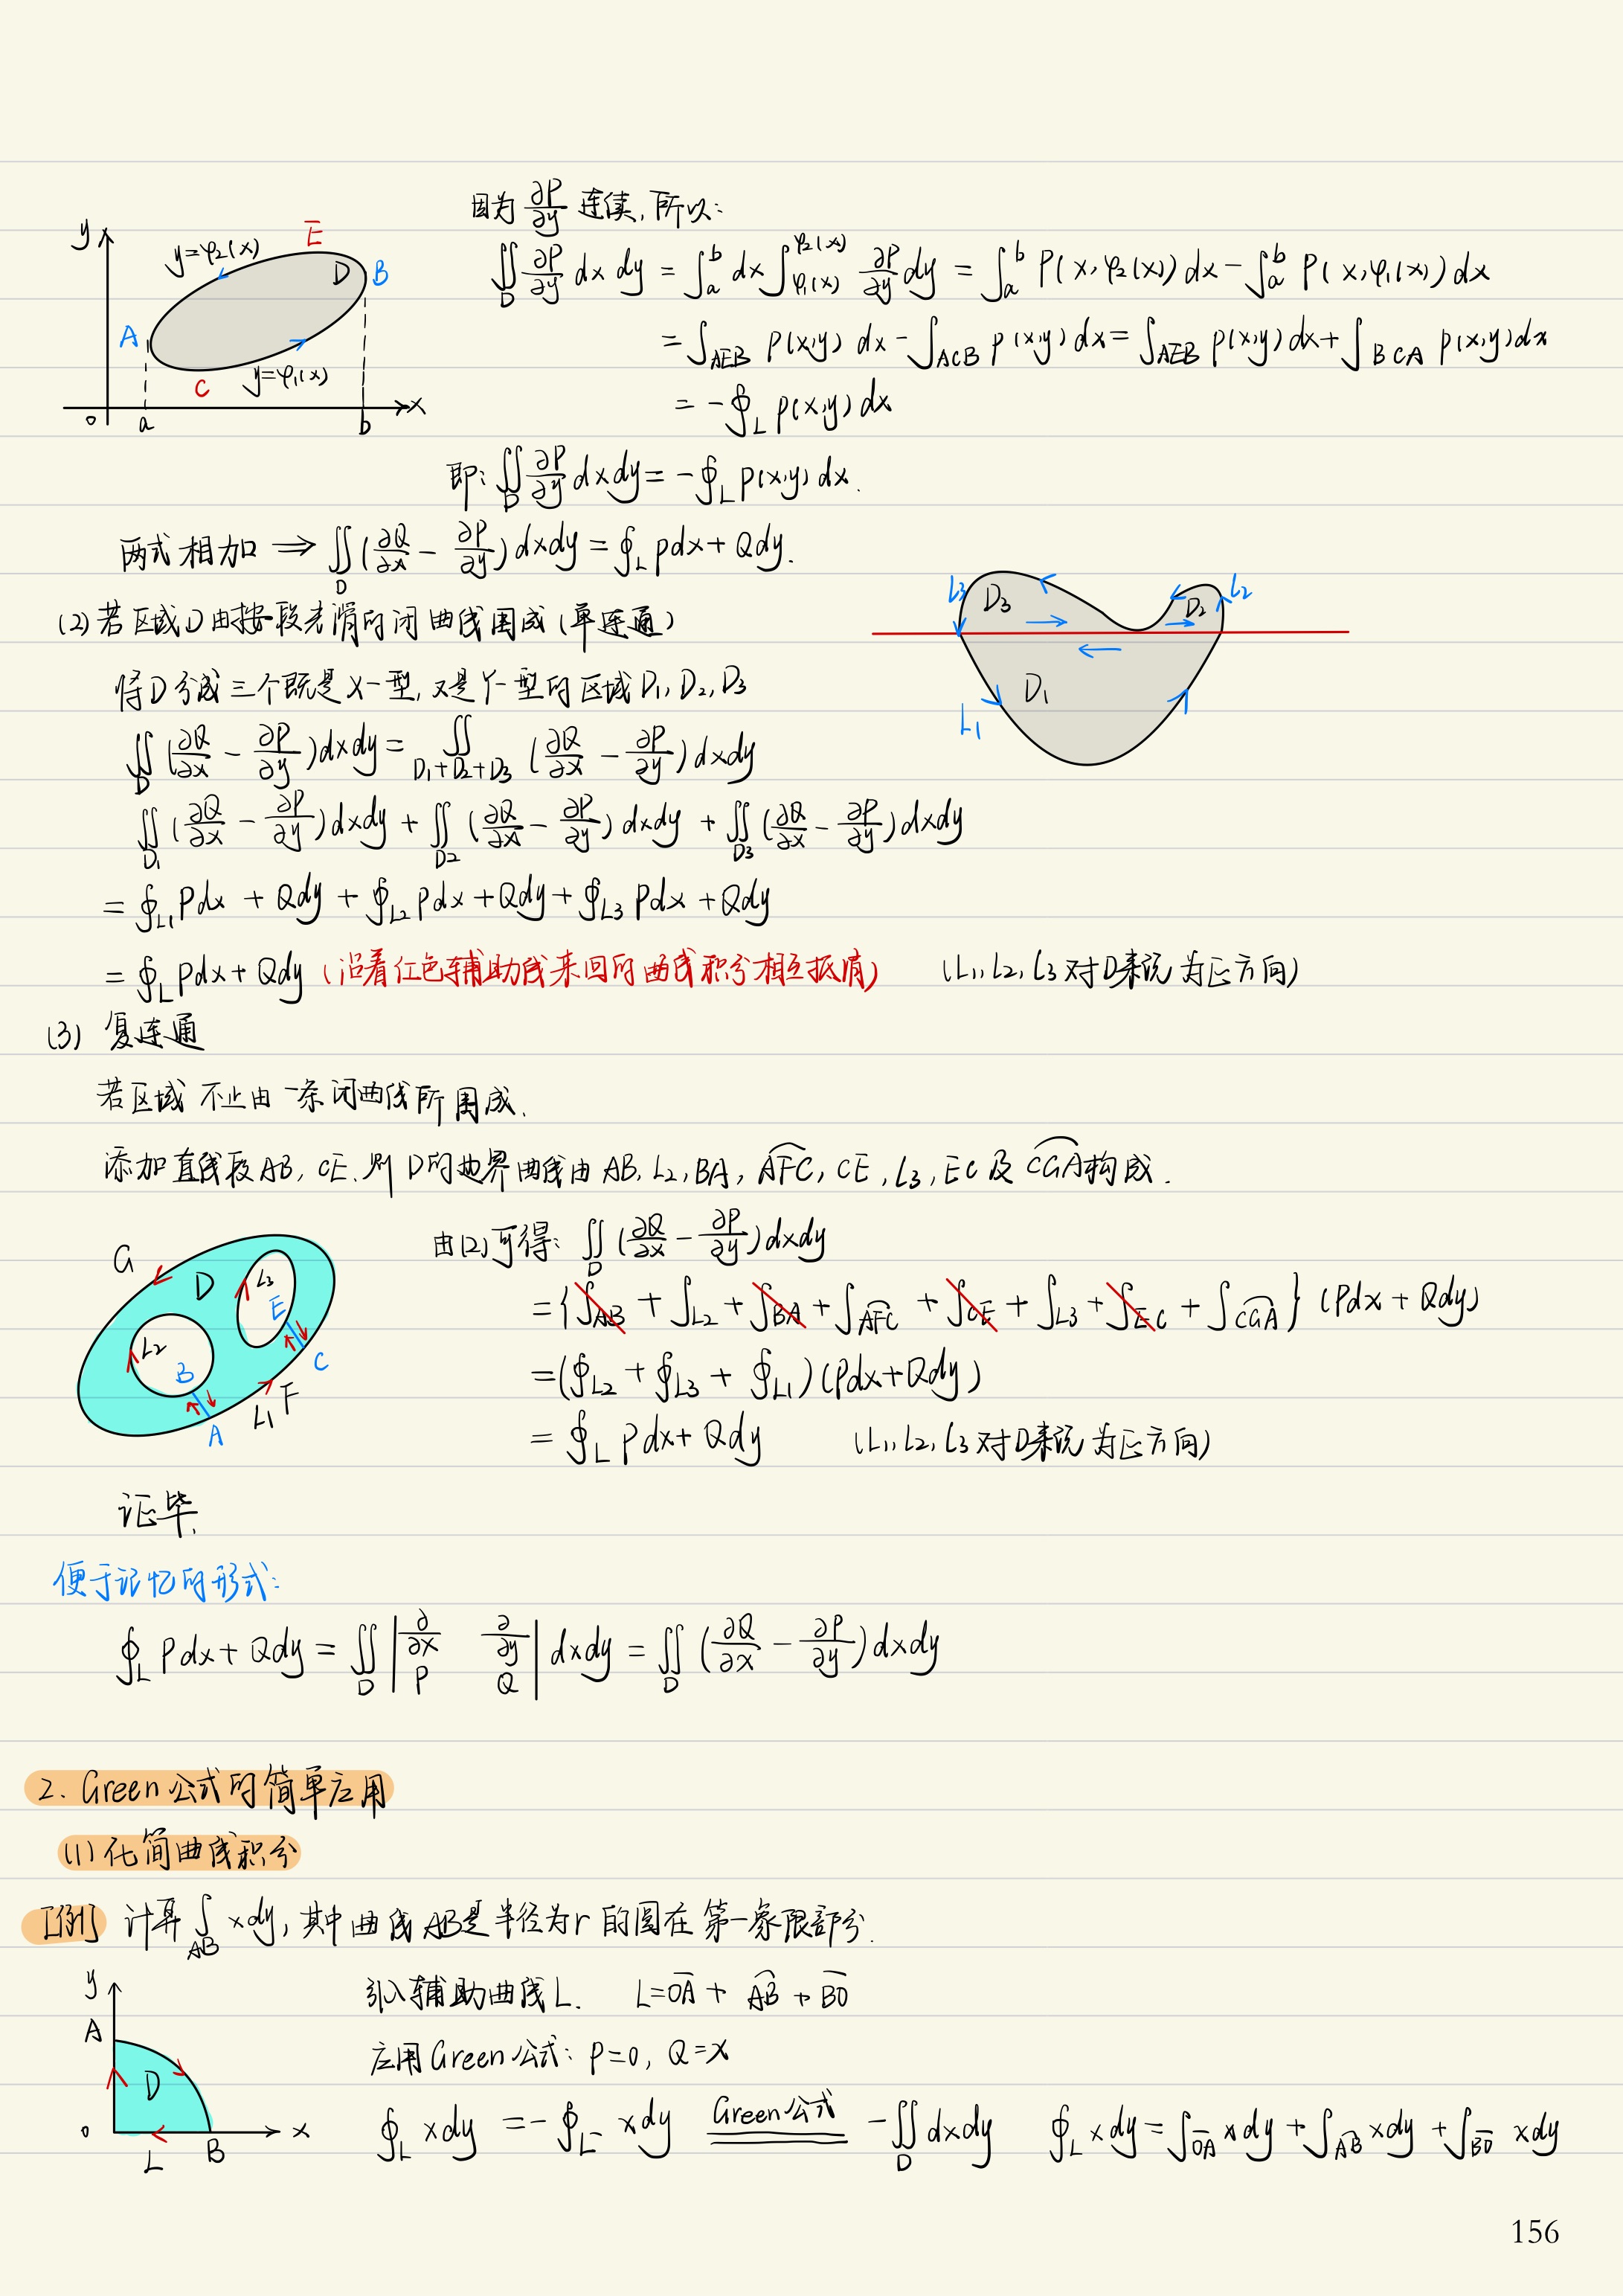 因为 ∂P/∂y 连续,所以:
y
E
y=φ₂(x)
D
B
A
C
y=φ₁(x)
o a b x
∬_D ∂P/∂y dx dy = ∫_a^b dx ∫_{φ₁(x)}^{φ₂(x)} ∂P/∂y dy = ∫_a^b P(x,φ₂(x)) dx - ∫_a^b P(x,φ₁(x)) dx
= ∫_{AEB} P(x,y) dx - ∫_{ACB} P(x,y) dx = ∫_{AEB} P(x,y) dx + ∫_{BCA} P(x,y) dx
= -∮_L P(x,y) dx
即: ∬_D ∂P/∂y dxdy = -∮_L P(x,y) dx.
两式相加 ⇒ ∬_D (∂Q/∂x - ∂P/∂y) dxdy = ∮_L Pdx + Qdy.
(2) 若区域D由按段光滑的闭曲线围成(单连通)
L3 D3 D2 L2
D1
L1
将D分成三个既是X-型,又是Y-型的区域D₁, D₂, D₃
∬_D (∂Q/∂x - ∂P/∂y) dxdy = ∬_{D₁+D₂+D₃} (∂Q/∂x - ∂P/∂y) dxdy
∬_{D₁} (∂Q/∂x - ∂P/∂y) dxdy + ∬_{D₂} (∂Q/∂x - ∂P/∂y) dxdy + ∬_{D₃} (∂Q/∂x - ∂P/∂y) dxdy
= ∮_{L₁} Pdx + Qdy + ∮_{L₂} Pdx + Qdy + ∮_{L₃} Pdx + Qdy
= ∮_L Pdx + Qdy (沿着红色辅助线来回的曲线积分相互抵消) (L₁, L₂, L₃对D来说为正方向)
(3) 复连通
若区域不止由一条闭曲线所围成.
添加直线段AB, CE. 则D的边界曲线由AB, L₂, BA, A͡FC, CE, L₃, EC及C͡GA构成.
G D L3 E
L2 B C
A L1 F
由(2)可得: ∬_D (∂Q/∂x - ∂P/∂y) dxdy
= {∫_{AB} + ∫_{L₂} + ∫_{BA} + ∫_{A͡FC} + ∫_{CE} + ∫_{L₃} + ∫_{EC} + ∫_{C͡GA}} (Pdx + Qdy)
= (∮_{L₂} + ∮_{L₃} + ∮_{L₁}) (Pdx + Qdy)
= ∮_L Pdx + Qdy (L₁, L₂, L₃对D来说为正方向)
证毕.
便于记忆的形式:
∮_L Pdx + Qdy = ∬_D |∂/∂x ∂/∂y; P Q| dxdy = ∬_D (∂Q/∂x - ∂P/∂y) dxdy
2. Green公式的简单应用
(1) 化简曲线积分
[例] 计算 ∫_{AB} xdy, 其中曲线AB是半径为r的圆在第一象限部分.
y
A
D
o L B x
引入辅助曲线L. L = O̅A̅ + A͡B + B̅O̅
应用Green公式: P=0, Q=x
∮_L xdy = -∮_{L⁻} xdy =(Green公式)= -∬_D dxdy ∮_L xdy = ∫_{O̅A̅} xdy + ∫_{A͡B} xdy + ∫_{B̅O̅} xdy
156